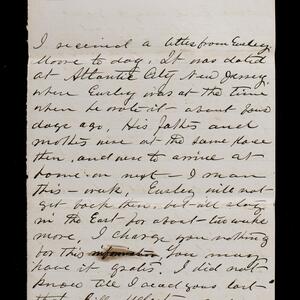 I received a letter from Eurley
Moore to day. It was dated
at Atlantic City New Jersey,
where Eurley was at the time
when he wrote it - about four
days ago. His father and
mother were at the same place
then, and were to arrive at
home on next - I mean
this - week. Eurley will not
get back then, but will stay
in the East for about two weeks
more. I charge you nothing
for this information You must
have it gratis. I did not
know till I read your last
that Bill